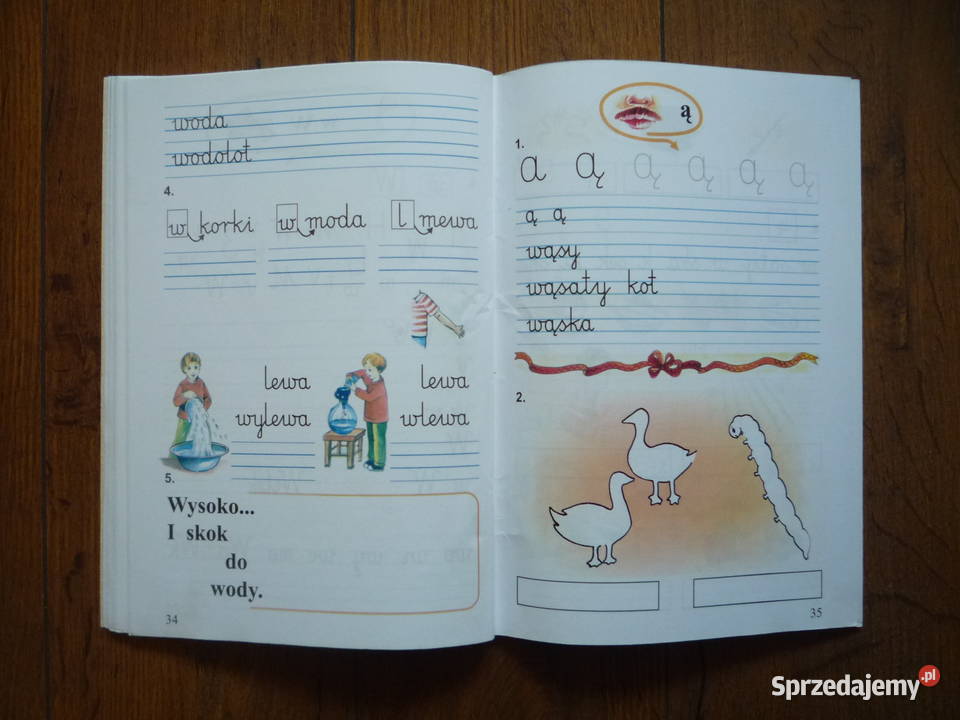 woda
wodolot
4.
w korki w moda l mewa
lewa lewa
wylewa wlewa
5.
Wysoko...
I skok
do
wody.
34
ą
1.
a ą ą ą ą ą
ą ą
wąsy
wąsaty kot
wąska
2.
35
Sprzedajemy.pl